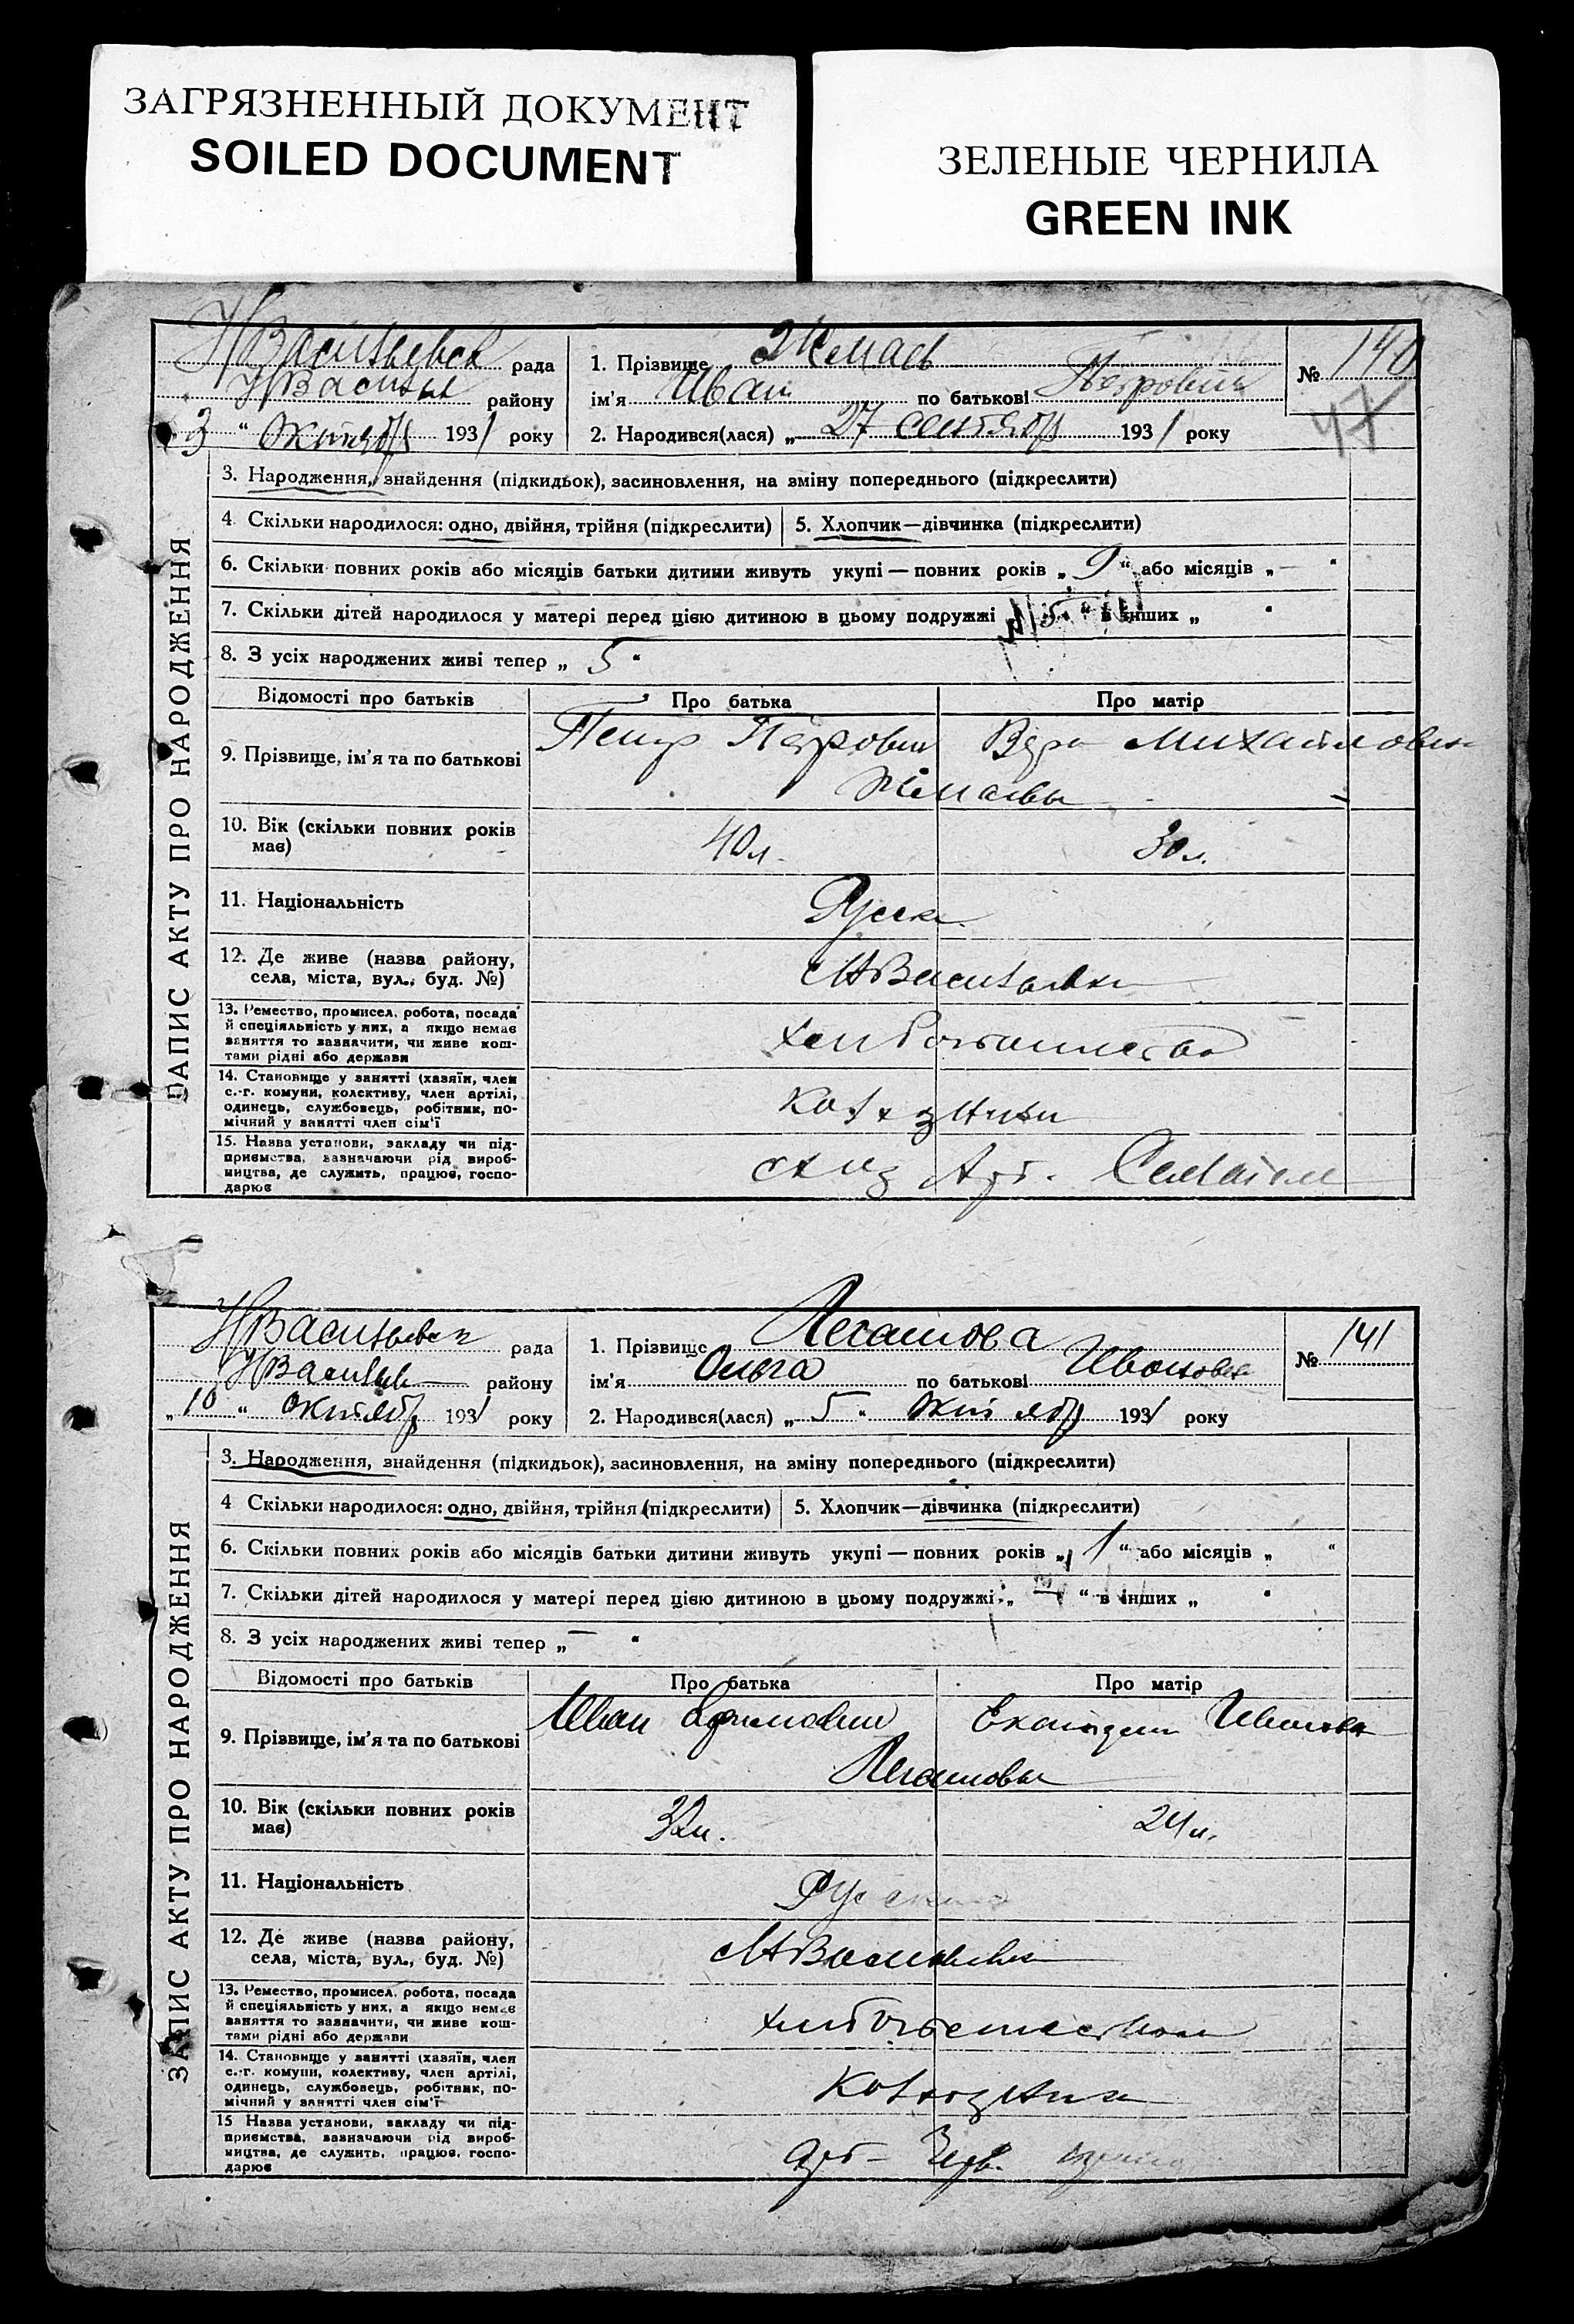 ЗАГРЯЗНЕННЫЙ ДОКУМЕНТ
SOILED DOCUMENT
ЗЕЛЕНЫЕ ЧЕРНИЛА
GREEN INK
НВасильевск рада
НВасильев району
3 “ Октября 1931 року
1. Прізвище
ім'я Иван по батькові Петрович
2. Народився(лася) „ 27 сентября 1931 року
№ 140
47
ЗАПИС АКТУ ПРО НАРОДЖЕННЯ
3. Народження, знайдення (підкидьок), засиновлення, на зміну попереднього (підкреслити)
4 Скільки народилося: одно, двійня, трійня (підкреслити) 5. Хлопчик—дівчинка (підкреслити)
6. Скільки повних років або місяців батьки дитини живуть укупі — повних років „ 9 “ або місяців „ — “
7. Скільки дітей народилося у матері перед цією дитиною в цьому подружжі 5 “ в інших „ “
8. З усіх народжених живі тепер „ 5 “
Відомості про батьків Про батька Про матір
9. Прізвище, ім'я та по батькові Петр Петрович Вера Михайловна
10. Вік (скільки повних років має) 40 л. 30 л.
11. Національність Русск
12. Де живе (назва району, села, міста, вул., буд. №) НВасильевка
13. Ремество, промисел, робота, посада й спеціяльність у них, а якщо немає заняття то зазначити, чи живе коштами рідні або держави хлебопашество
14. Становище у занятті (хазяїн, член с.-г. комуни, колективу, член артілі, одинець, службовець, робітник, помічний у занятті член сім'ї колхозники
15. Назва установи, закладу чи підприємства, зазначаючи рід виробництва, де служить, працює, господарює Арт.
НВасильевск рада
НВасильев району
„ 10 “ октября 1931 року
1. Прізвище Легашова
ім'я Ольга по батькові Ивановна
2. Народився(лася) „ 5 “ Октября 1931 року
№ 141
ЗАПИС АКТУ ПРО НАРОДЖЕННЯ
3. Народження, знайдення (підкидьок), засиновлення, на зміну попереднього (підкреслити)
4 Скільки народилося: одно, двійня, трійня (підкреслити) 5. Хлопчик—дівчинка (підкреслити)
6. Скільки повних років або місяців батьки дитини живуть укупі — повних років „ 1 “ або місяців „ “
7. Скільки дітей народилося у матері перед цією дитиною в цьому подружжі „ — “ в інших „ “
8. З усіх народжених живі тепер „ — “
Відомості про батьків Про батька Про матір
9. Прізвище, ім'я та по батькові Иван Екатерин Иванова
Легашовы
10. Вік (скільки повних років має) 32 л. 24 л.
11. Національність Русские
12. Де живе (назва району, села, міста, вул., буд. №) НВасильевка
13. Ремество, промисел, робота, посада й спеціяльність у них, а якщо немає заняття то зазначити, чи живе коштами рідні або держави хлебопашеством
14. Становище у занятті (хазяїн, член с.-г. комуни, колективу, член артілі, одинець, службовець, робітник, помічний у занятті член сім'ї колхозники
15 Назва установи, закладу чи підприємства, зазначаючи рід виробництва, де служить, працює, господарює арт — Черв.